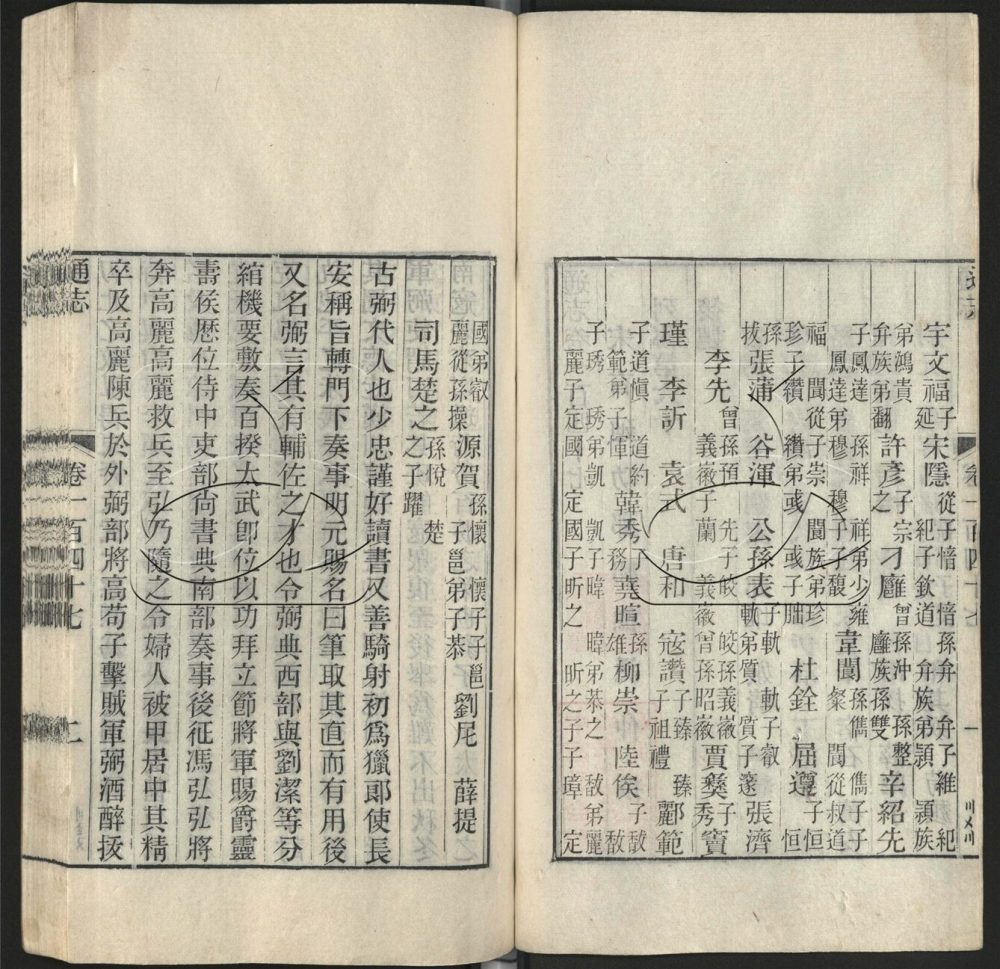 宇文福子延 宋隱從子愔 愔孫弁 弁子維 紀 紀子欽道 弁族弟穎 穎族
弟鴻貴 弁族弟翻 許彥子宗之 刁雍曾孫沖 孫整 雍族孫雙 辛紹先
子鳳達 孫祥 祥弟少雍 鳳達弟穆 穆子子馥 韋閬孫儁 儁子子粲 閬從叔道
福 閬從子崇 閬族弟珍 珍子纘 纘弟彧 彧子朏 杜銓 屈遵子恒 恒
孫拔 張蒲 谷渾 公孫表子軌 軌子叡 軌弟質 質子邃 張濟
李先曾孫預 先子皎 皎孫義徽 義徽子蘭 義徽曾孫昭徽 賈彝子秀 竇
瑾 李訢 袁式 唐和 寇讚子臻 臻子祖禮 酈範
子道慎 道約 範弟子惲 韓秀子務 堯暄孫雄 柳崇 陸俟子敔 敔
子琇 琇弟凱 凱子暐 暐弟恭之 敔弟麗 麗子定國 定國子昕之 昕之子子璋 定
國弟叡 麗從孫操 源賀孫懷 懷子子邕 子邕弟子恭 劉尼 薛提
司馬楚之孫悅 楚之子躍
古弼代人也少忠謹好讀書又善騎射初爲獵郎使長
安稱旨轉門下奏事明元賜名曰筆取其直而有用後
又名弼言其有輔佐之才也令弼典西部與劉潔等分
綰機要敷奏百揆太武卽位以功拜立節將軍賜爵靈
壽侯歷位侍中吏部尚書典南部奏事後征馮弘弘將
奔高麗高麗救兵至弘乃隨之令婦人被甲居中其精
卒及高麗陳兵於外弼部將高苟子擊賊軍弼酒醉拔
通志 卷一百四十七 二